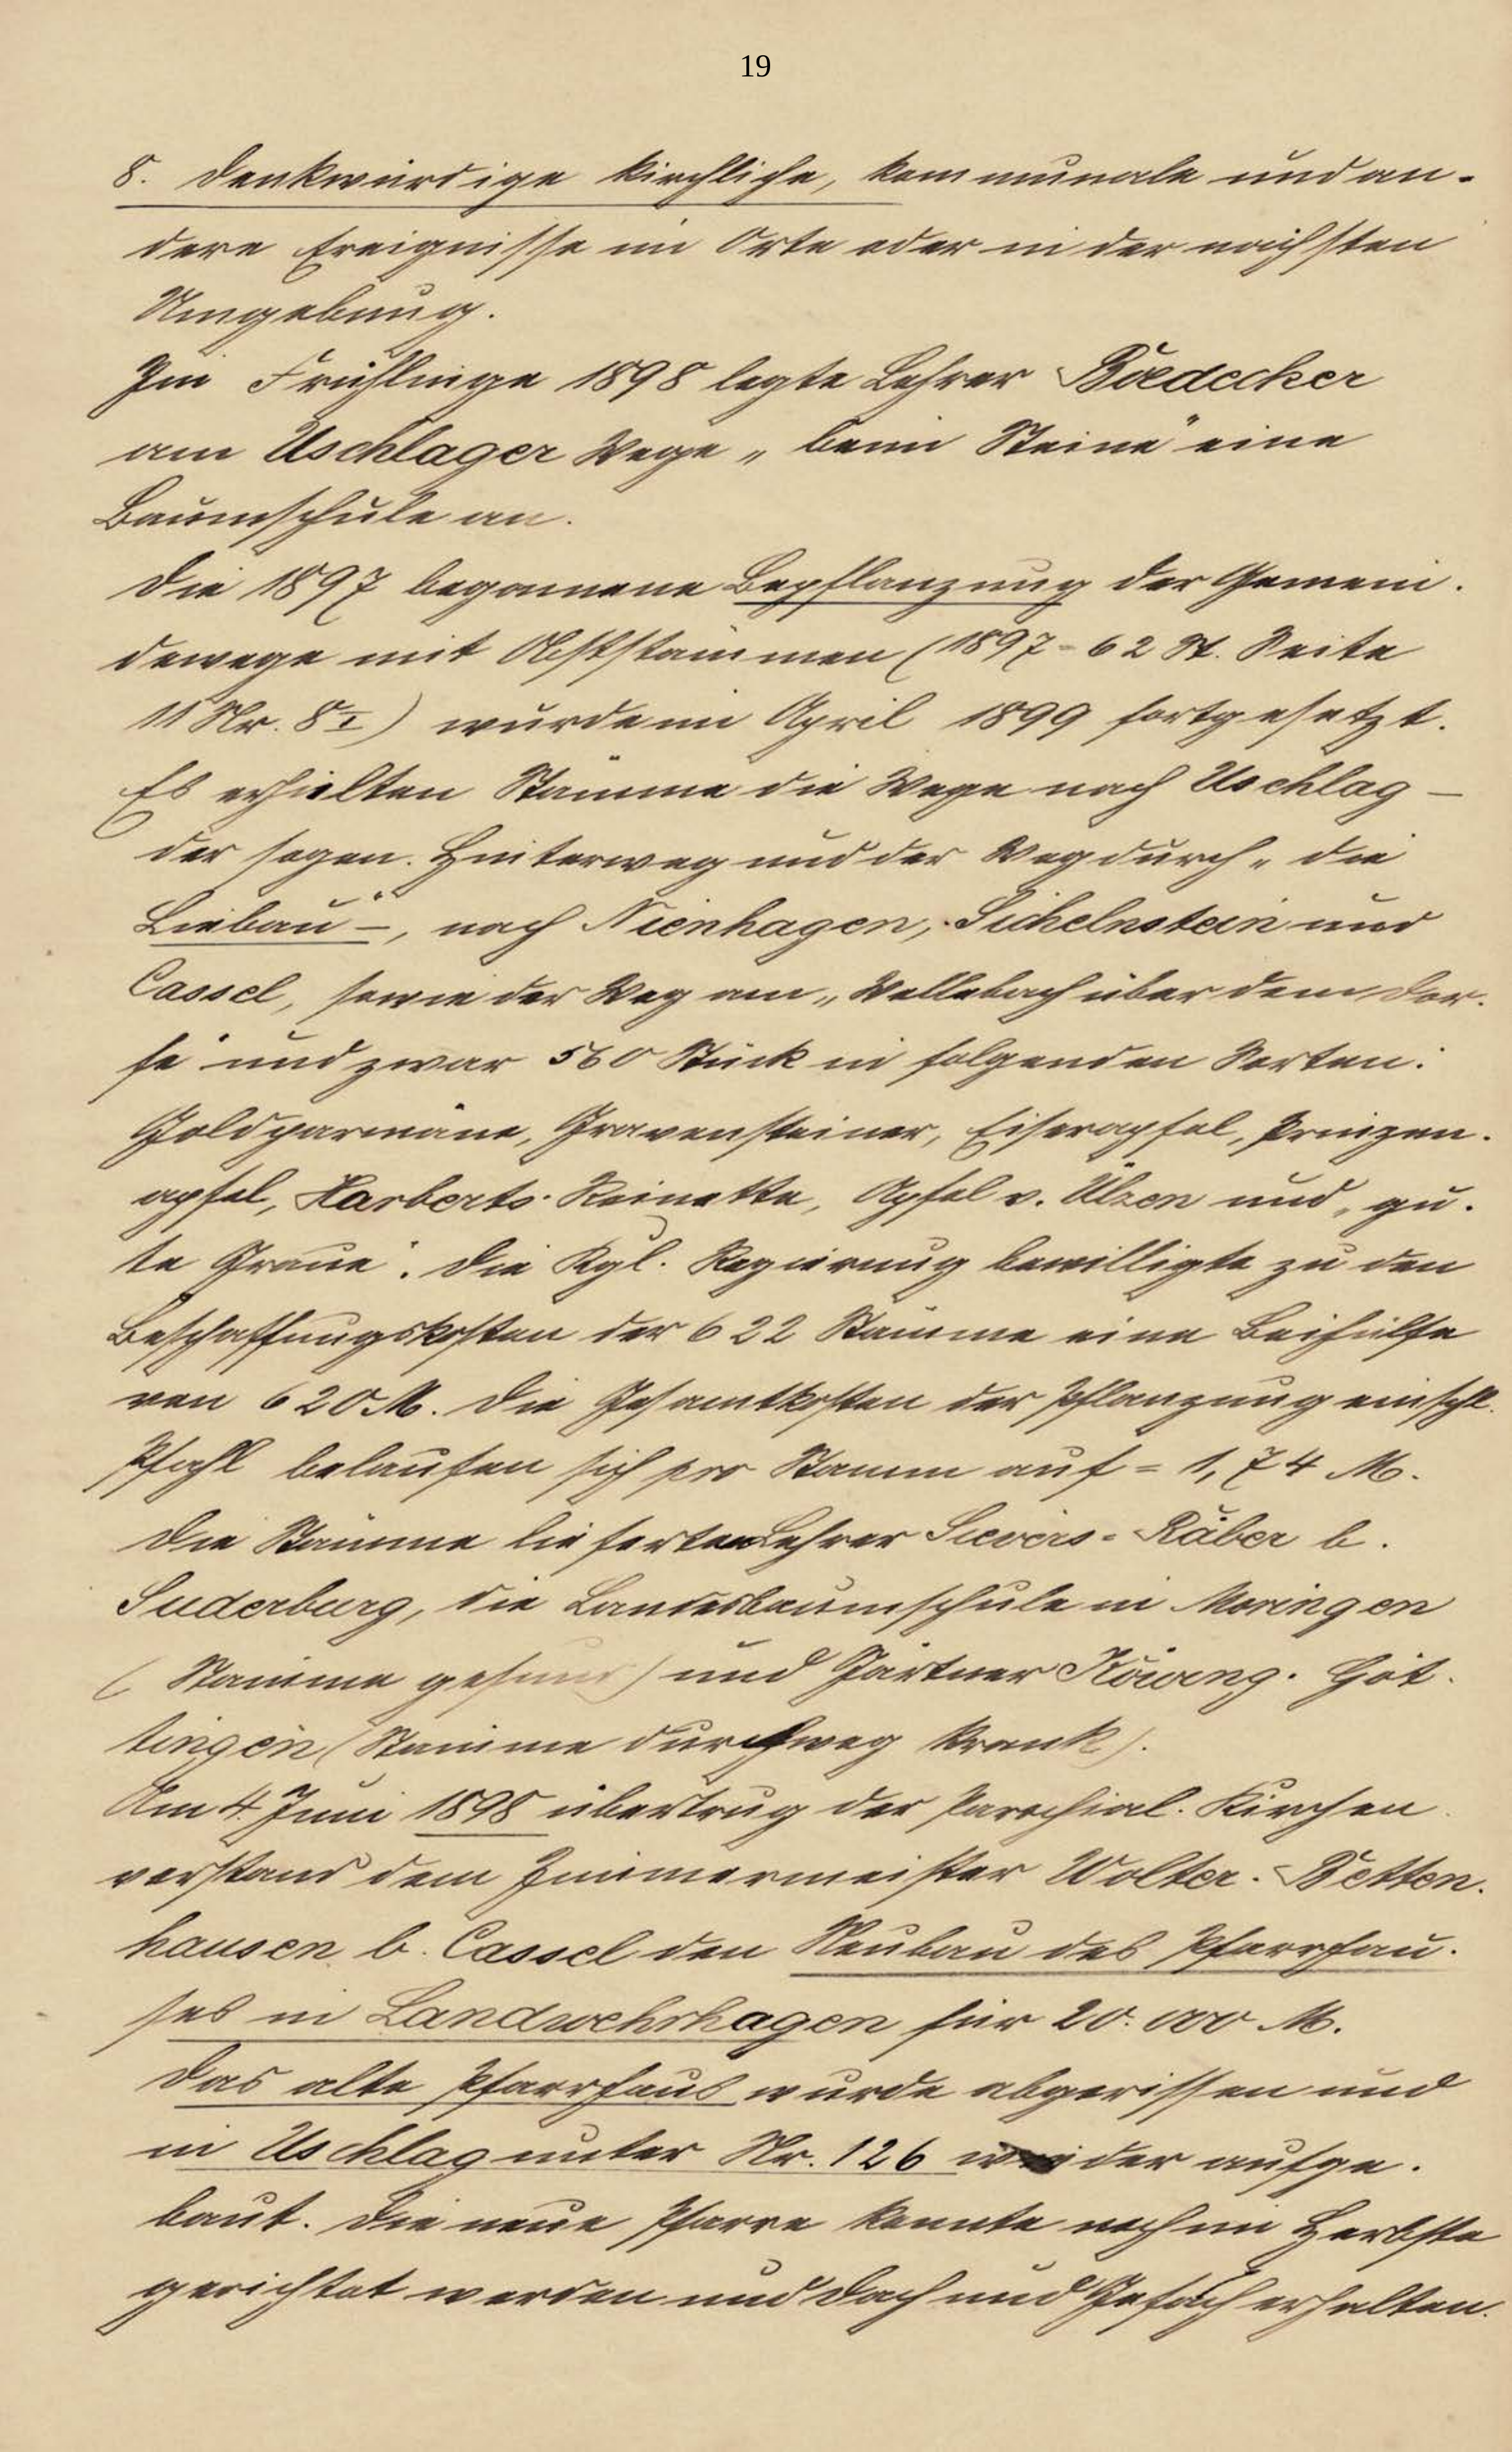 19
8. Denkwürdige kirchliche, kommunale und an-
dere Ereignisse im Orte oder in der nächsten
Umgebung.
Im Frühlinge 1898 legte Lehrer Boedecker
am Uschlager Wege „beim Steine" eine
Baumschule an.
Die 1897 begonnene Bepflanzung der Gemein-
dewege mit Obststämmen (1897 = 62 St. Seite
11 Nr. 8 I) wurde im April 1899 fortgesetzt.
Es erhielten Stämme die Wege nach Uschlag –
der sogen. Hinterweg und der Weg durch „die
Liebau" –, nach Nienhagen, Sichelnstein und
Cassel, sowie der Weg am „Wellebach über dem Dor-
fe" und zwar 560 Stück in folgenden Sorten:
Goldparmäne, Gravensteiner, Eiserapfel, Prinzen-
apfel, Harberts-Reinette, Apfel v. Ülzen und „gu-
te Graue". Die Kgl. Regierung bewilligte zu den
Beschaffungskosten der 622 Stämme eine Beihülfe
von 620 M. Die Gesamtkosten der Pflanzung einschl.
Pfahl belaufen sich pro Stamm auf = 1,74 M.
Die Stämme lieferten Lehrer Sievers-Räber b.
Suderburg, die Landesbaumschule in Moringen
(Stämme gesund) und Gärtner Göt-
tingen (Stämme durchweg krank).
Am 4 Juni 1898 übertrug der Parochial-Kirchen
vorstand dem Zimmermeister Wolter-Betten-
hausen b. Cassel den Neubau des Pfarrhau-
ses in Landwehrhagen für 20.000 M.
Das alte Pfarrhaus wurde abgerissen und
in Uschlag unter Nr. 126 wieder aufge-
baut. Die neue Pfarre konnte noch im Herbste
gerichtet werden und Dach und Gefach erhalten.